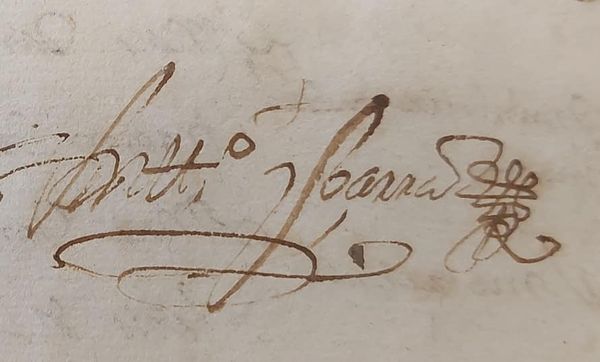 Antt.º Ybarra